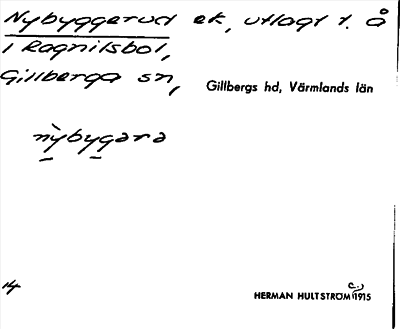 Nybyggerud ek, utlagt t. å
i Ragnilsbol,
Gillberga sn,
Gillbergs hd, Värmlands län
nybygara
14
HERMAN HULTSTRÖM c. 1915